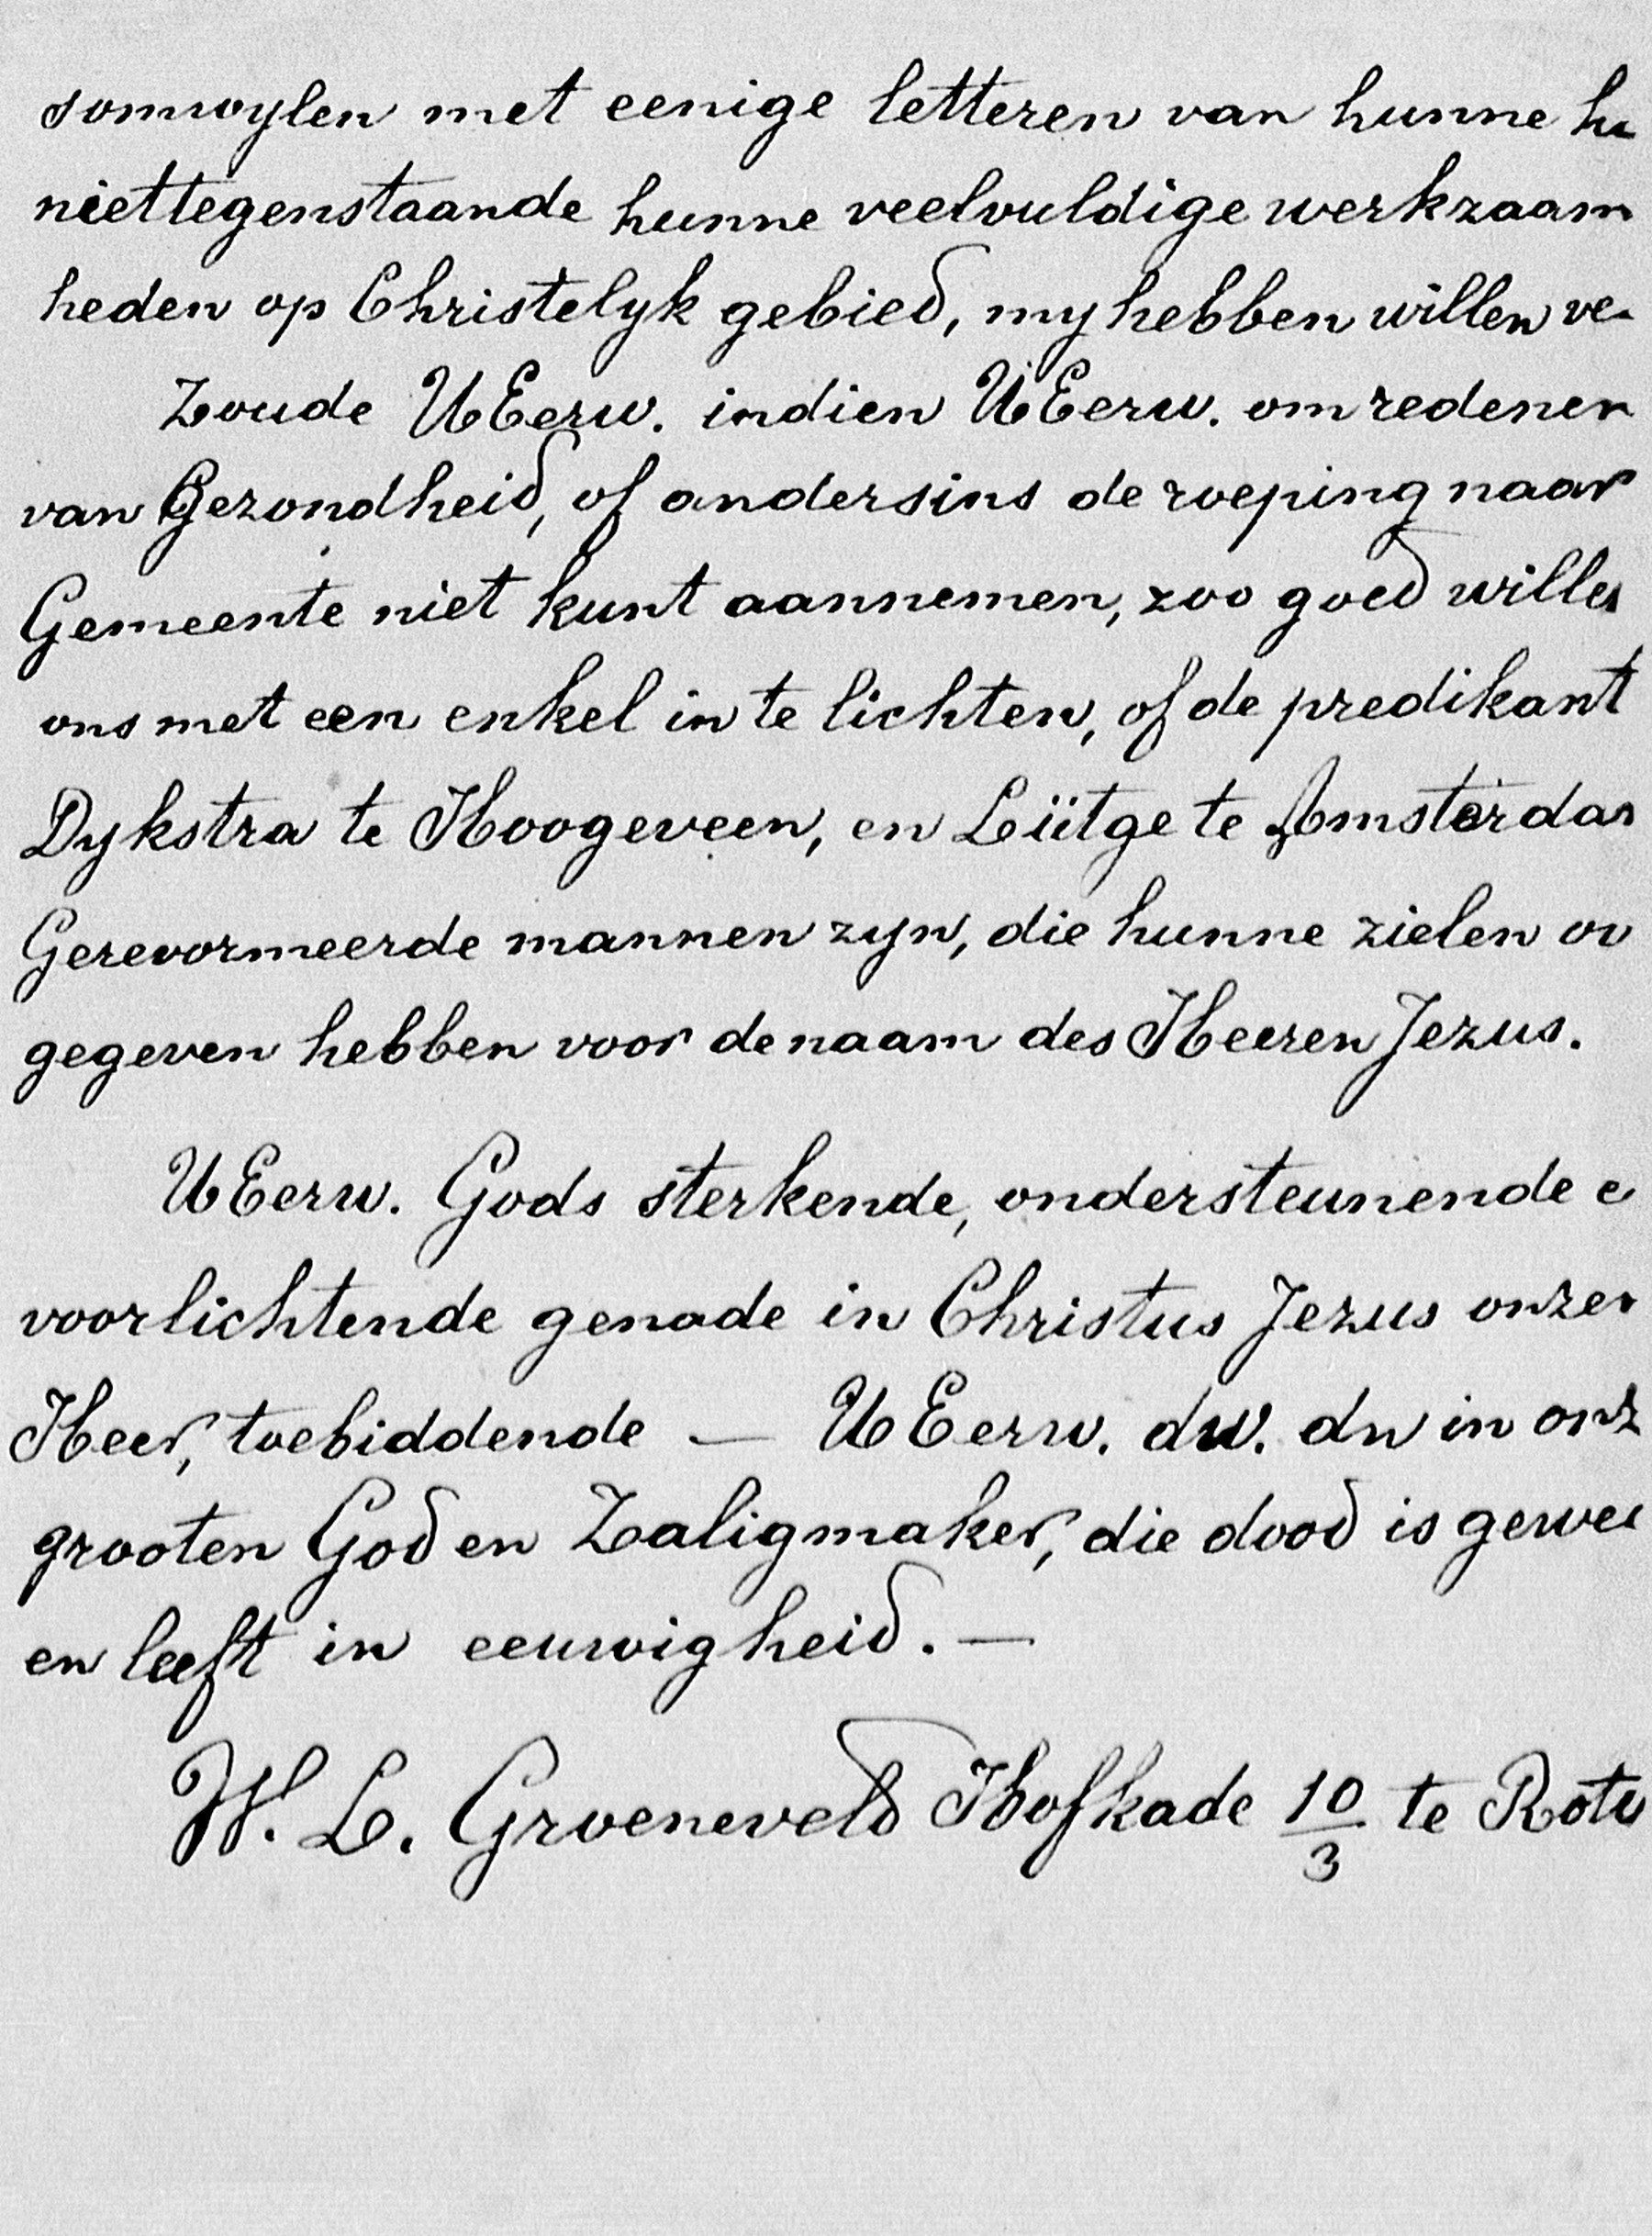 somwylen met eenige letteren van hunne
niettegenstaande hunne veelvuldige werkzaam
heden op Christelyk gebied, my hebben willen ve
Zoude UEerw. indien UEerw. om redenen
van Gezondheid, of andersins de roeping naar
Gemeente niet kunt aannemen, zoo goed willen
ons met een enkel in te lichten, of de predikant
Dykstra te Hoogeveen, en Lütge te Amsterdam
Gerevormeerde mannen zyn, die hunne zielen ov
gegeven hebben voor de naam des Heeren Jezus.
UEerw. Gods sterkende, ondersteunende e
voorlichtende genade in Christus Jezus onzer
Heer, toebiddende — UEerw. dw. dn in onz
grooten God en Zaligmaker, die dood is gewee
en leeft in eeuwigheid. —
W. L. Groeneveld Hofkade 10/3 te Rott